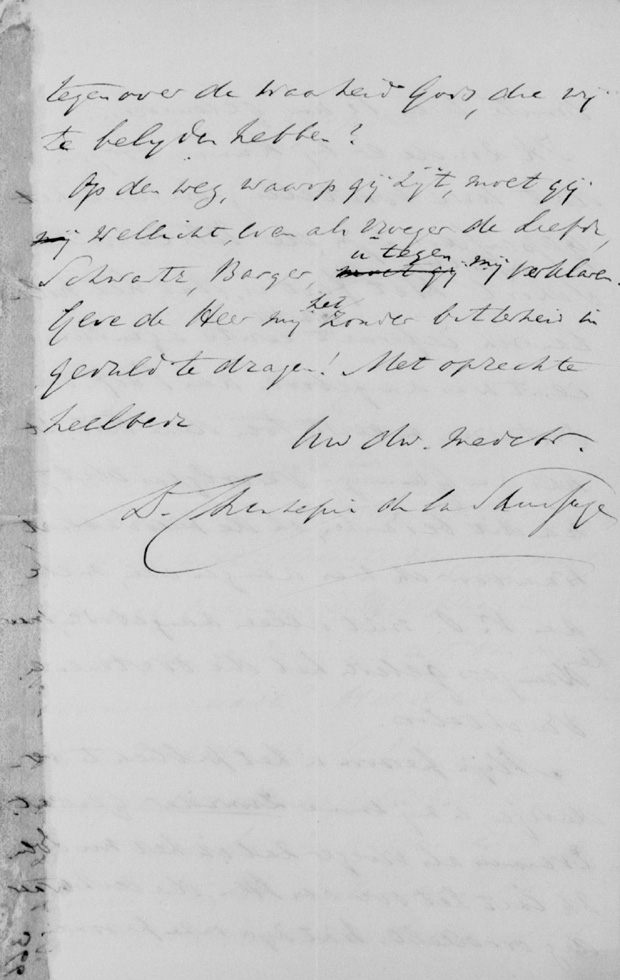 tegenover de waarheid Gods, die wij
te belijden hebben?
Op den weg, waarop gij zijt, moet gij
mij wellicht, even als vroeger de Liefde,
Schwartz, Barger, moet gij u tegen mij verklaren.
Geve de Heer mij het zonder bitterheid in
geduld te dragen! Met oprechte
heelbede
Uw dw. medebr.
D. Chantepie de la Saussaye